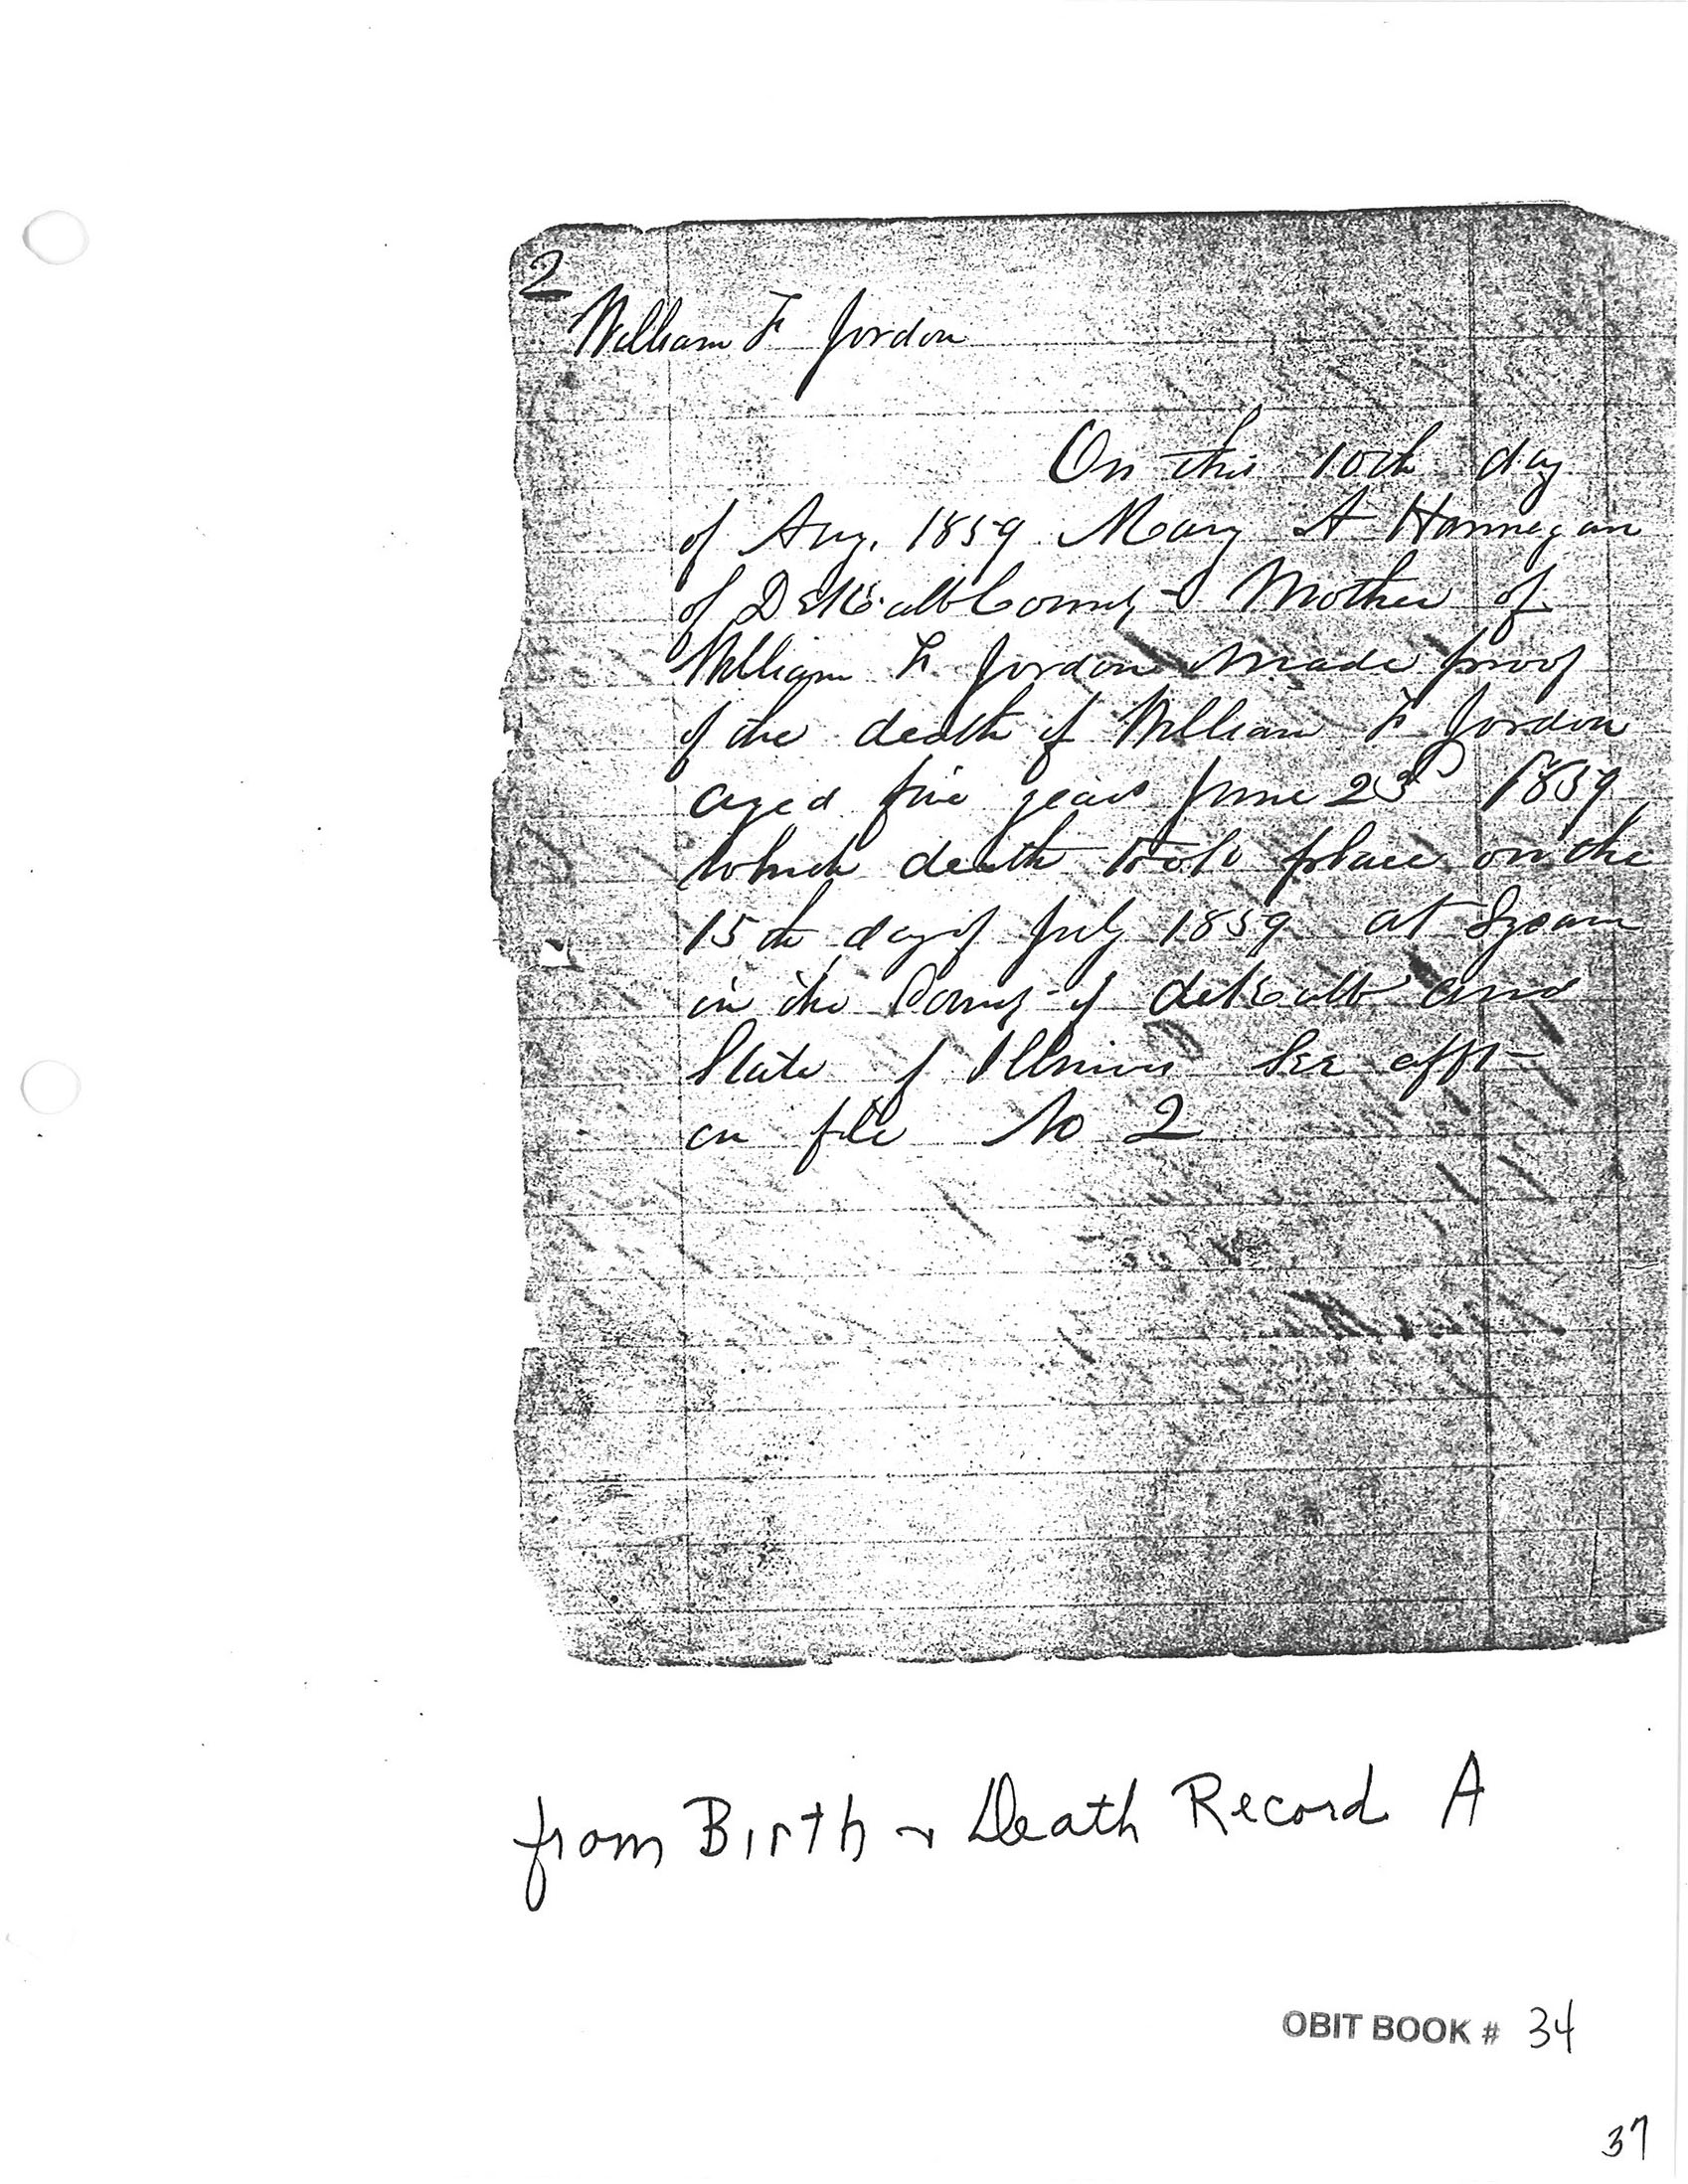 2
William F Jordon
On this 10th day
of Aug. 1859 Mary A Hannegan
of DeKalb County Mother of
William F. Jordon made proof
of the death of William F Jordon
aged five years June 23d 1859
which death took place on the
15th day of July 1859 at
in the County of deKalb and
State of Illinois See afft
on file No 2
from Birth & Death Record A
OBIT BOOK # 34
37